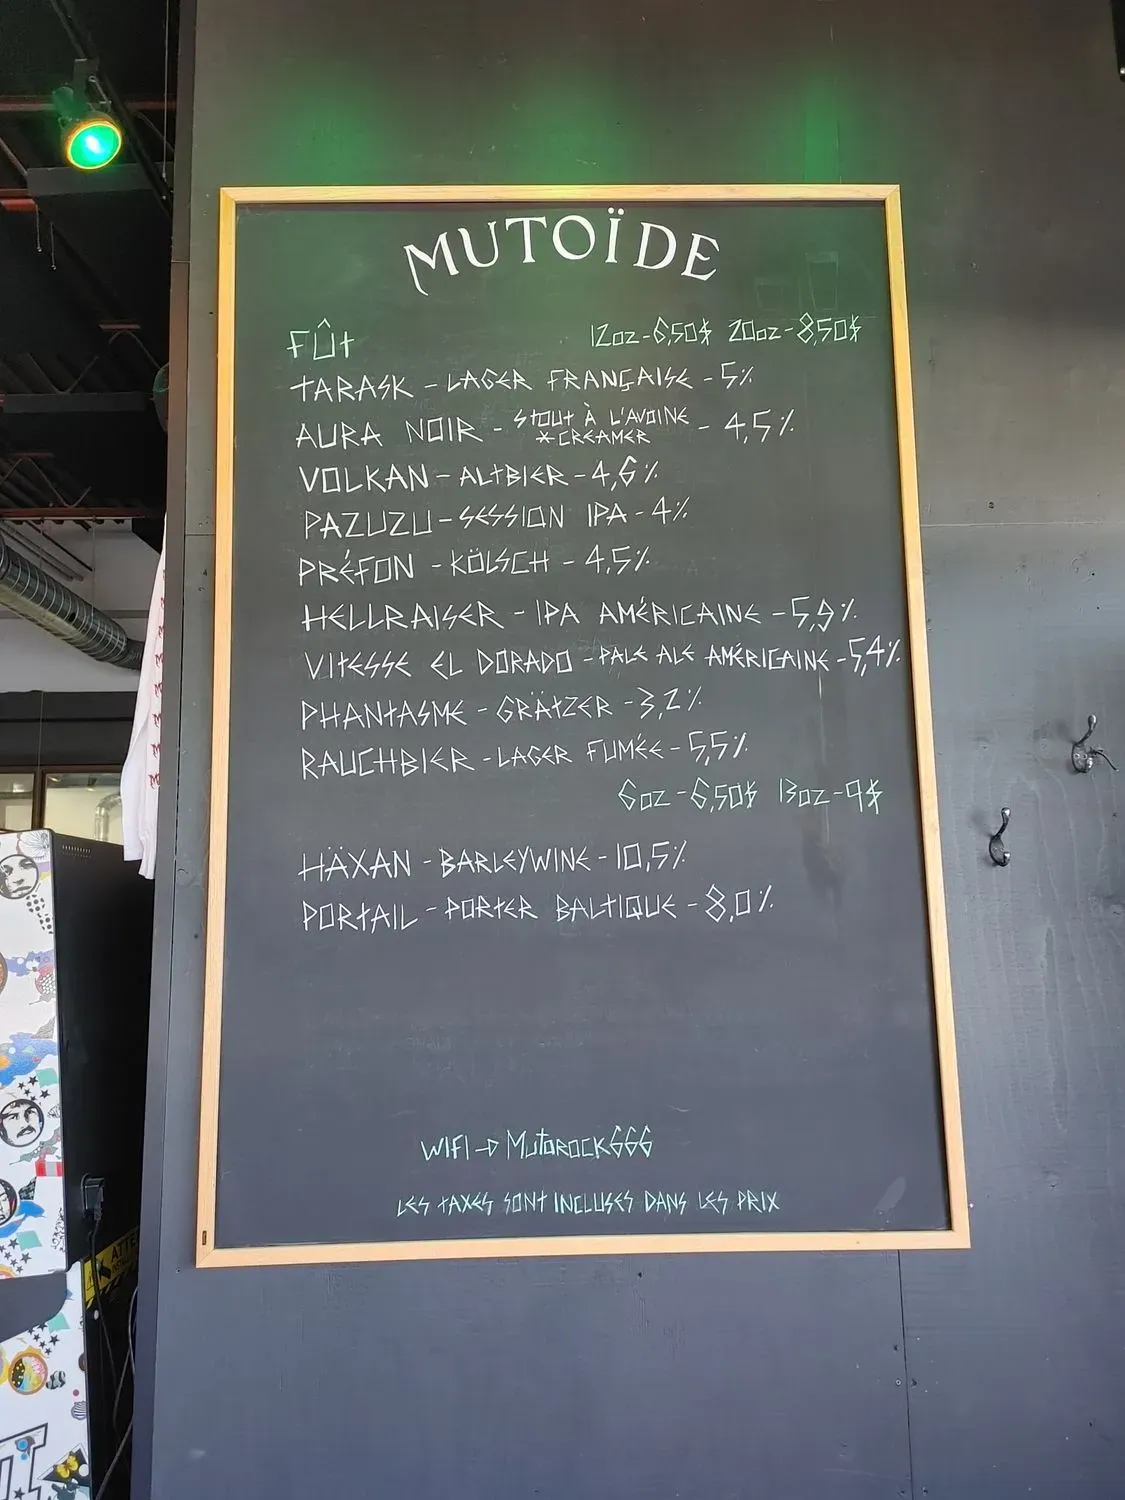 MUTOÏDE
FÛT 12oz-6,50$ 20oz-8,50$
TARASK - LAGER FRANÇAISE - 5%
AURA NOIR - STOUT À L'AVOINE - 4,5%
*CREAMER
VOLKAN - ALTBIER - 4,6%
PAZUZU - SESSION IPA - 4%
PRÉFON - KÖLSCH - 4,5%
HELLRAISER - IPA AMÉRICAINE - 5,9%
VITESSE EL DORADO - PALE ALE AMÉRICAINE - 5,4%
PHANTASME - GRÄTZER - 3,2%
RAUCHBIER - LAGER FUMÉE - 5,5%
6oz-6,50$ 13oz-9$
HÄXAN - BARLEYWINE - 10,5%
PORTAIL - PORTER BALTIQUE - 8,0%
WIFI → Mutorock666
LES TAXES SONT INCLUSES DANS LES PRIX